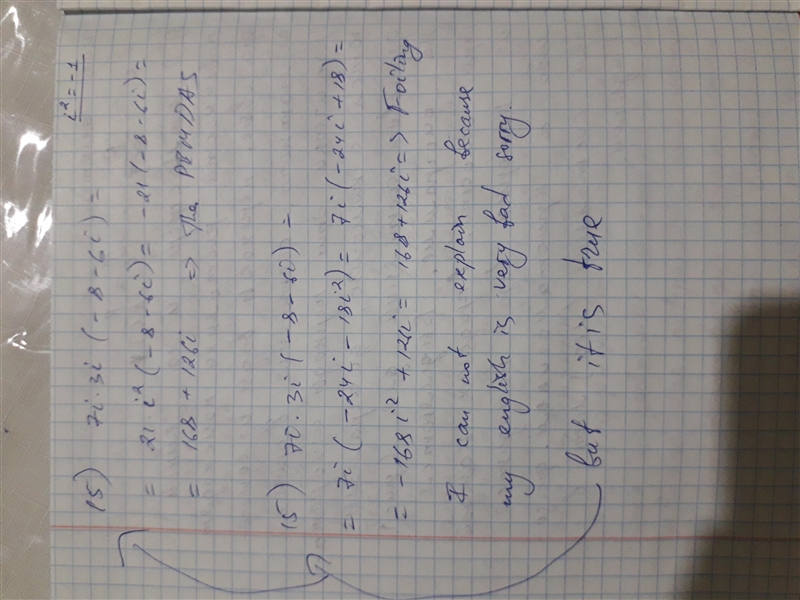 i² = -1
15) 7i · 3i (-8-6i) =
= 21 i² (-8-6i) = -21 (-8-6i) =
= 168 + 126i => The PEMDAS
15) 7i · 3i (-8-6i) =
= 7i (-24i - 18i²) = 7i (-24i + 18) =
= -168i² + 126i = 168 + 126i => Foiling
I can not explain because
my english is very bad sorry.
but it is true